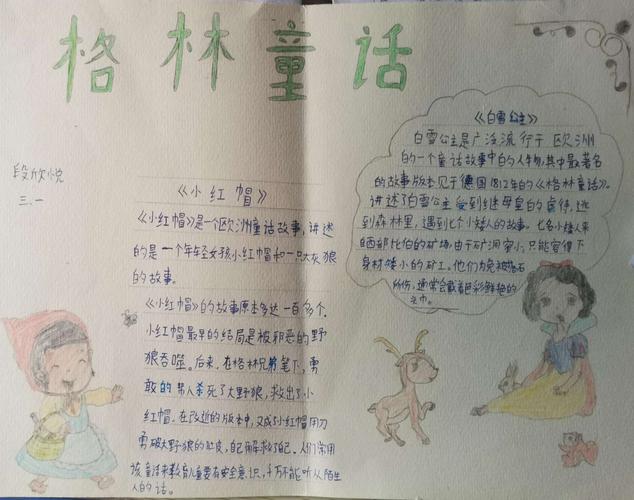 格林童话
段欣悦
三.一
《小红帽》
《小红帽》是个欧洲童话故事,讲述
的是一个年轻女孩小红帽和一只大灰狼
的故事。
《小红帽》的故事原本多达一百多个.
小红帽最早的结局是被邪恶的野
狼吞噬。后来.在格林兄弟笔下,勇
敢的男人杀死了大野狼,救出了小
红帽.在改进的版本中,又成了小红帽用刀
剪破大野狼的肚皮,自己解救了自己.人们常用
该童话来教育儿童要有安全意识,千万不能听从陌生
人的话。
《白雪公主》
白雪公主是广泛流行于欧洲
的一个童话故事中的人物,其中最著名
的故事版本见于德国1812年的《格林童话》。
讲述了白雪公主受到继母皇的虐待,逃
到森林里,遇到七个小矮人的故事。七名小矮人来
西部比伯的矿场,由于矿洞窄小,只能容得下
身材矮小的矿工。他们为免被落石
所伤,通常会戴着色彩鲜艳的
头巾。